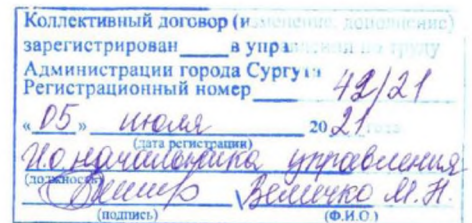 Коллективный договор (изменение, дополнение)
зарегистрирован ____ в управлении по труду
Администрации города Сургута
Регистрационный номер 42/21
«05» июля 2021 года
(дата регистрации)
И.о. начальника управления
(должность)
Величко М.Н.
(подпись) (Ф.И.О.)